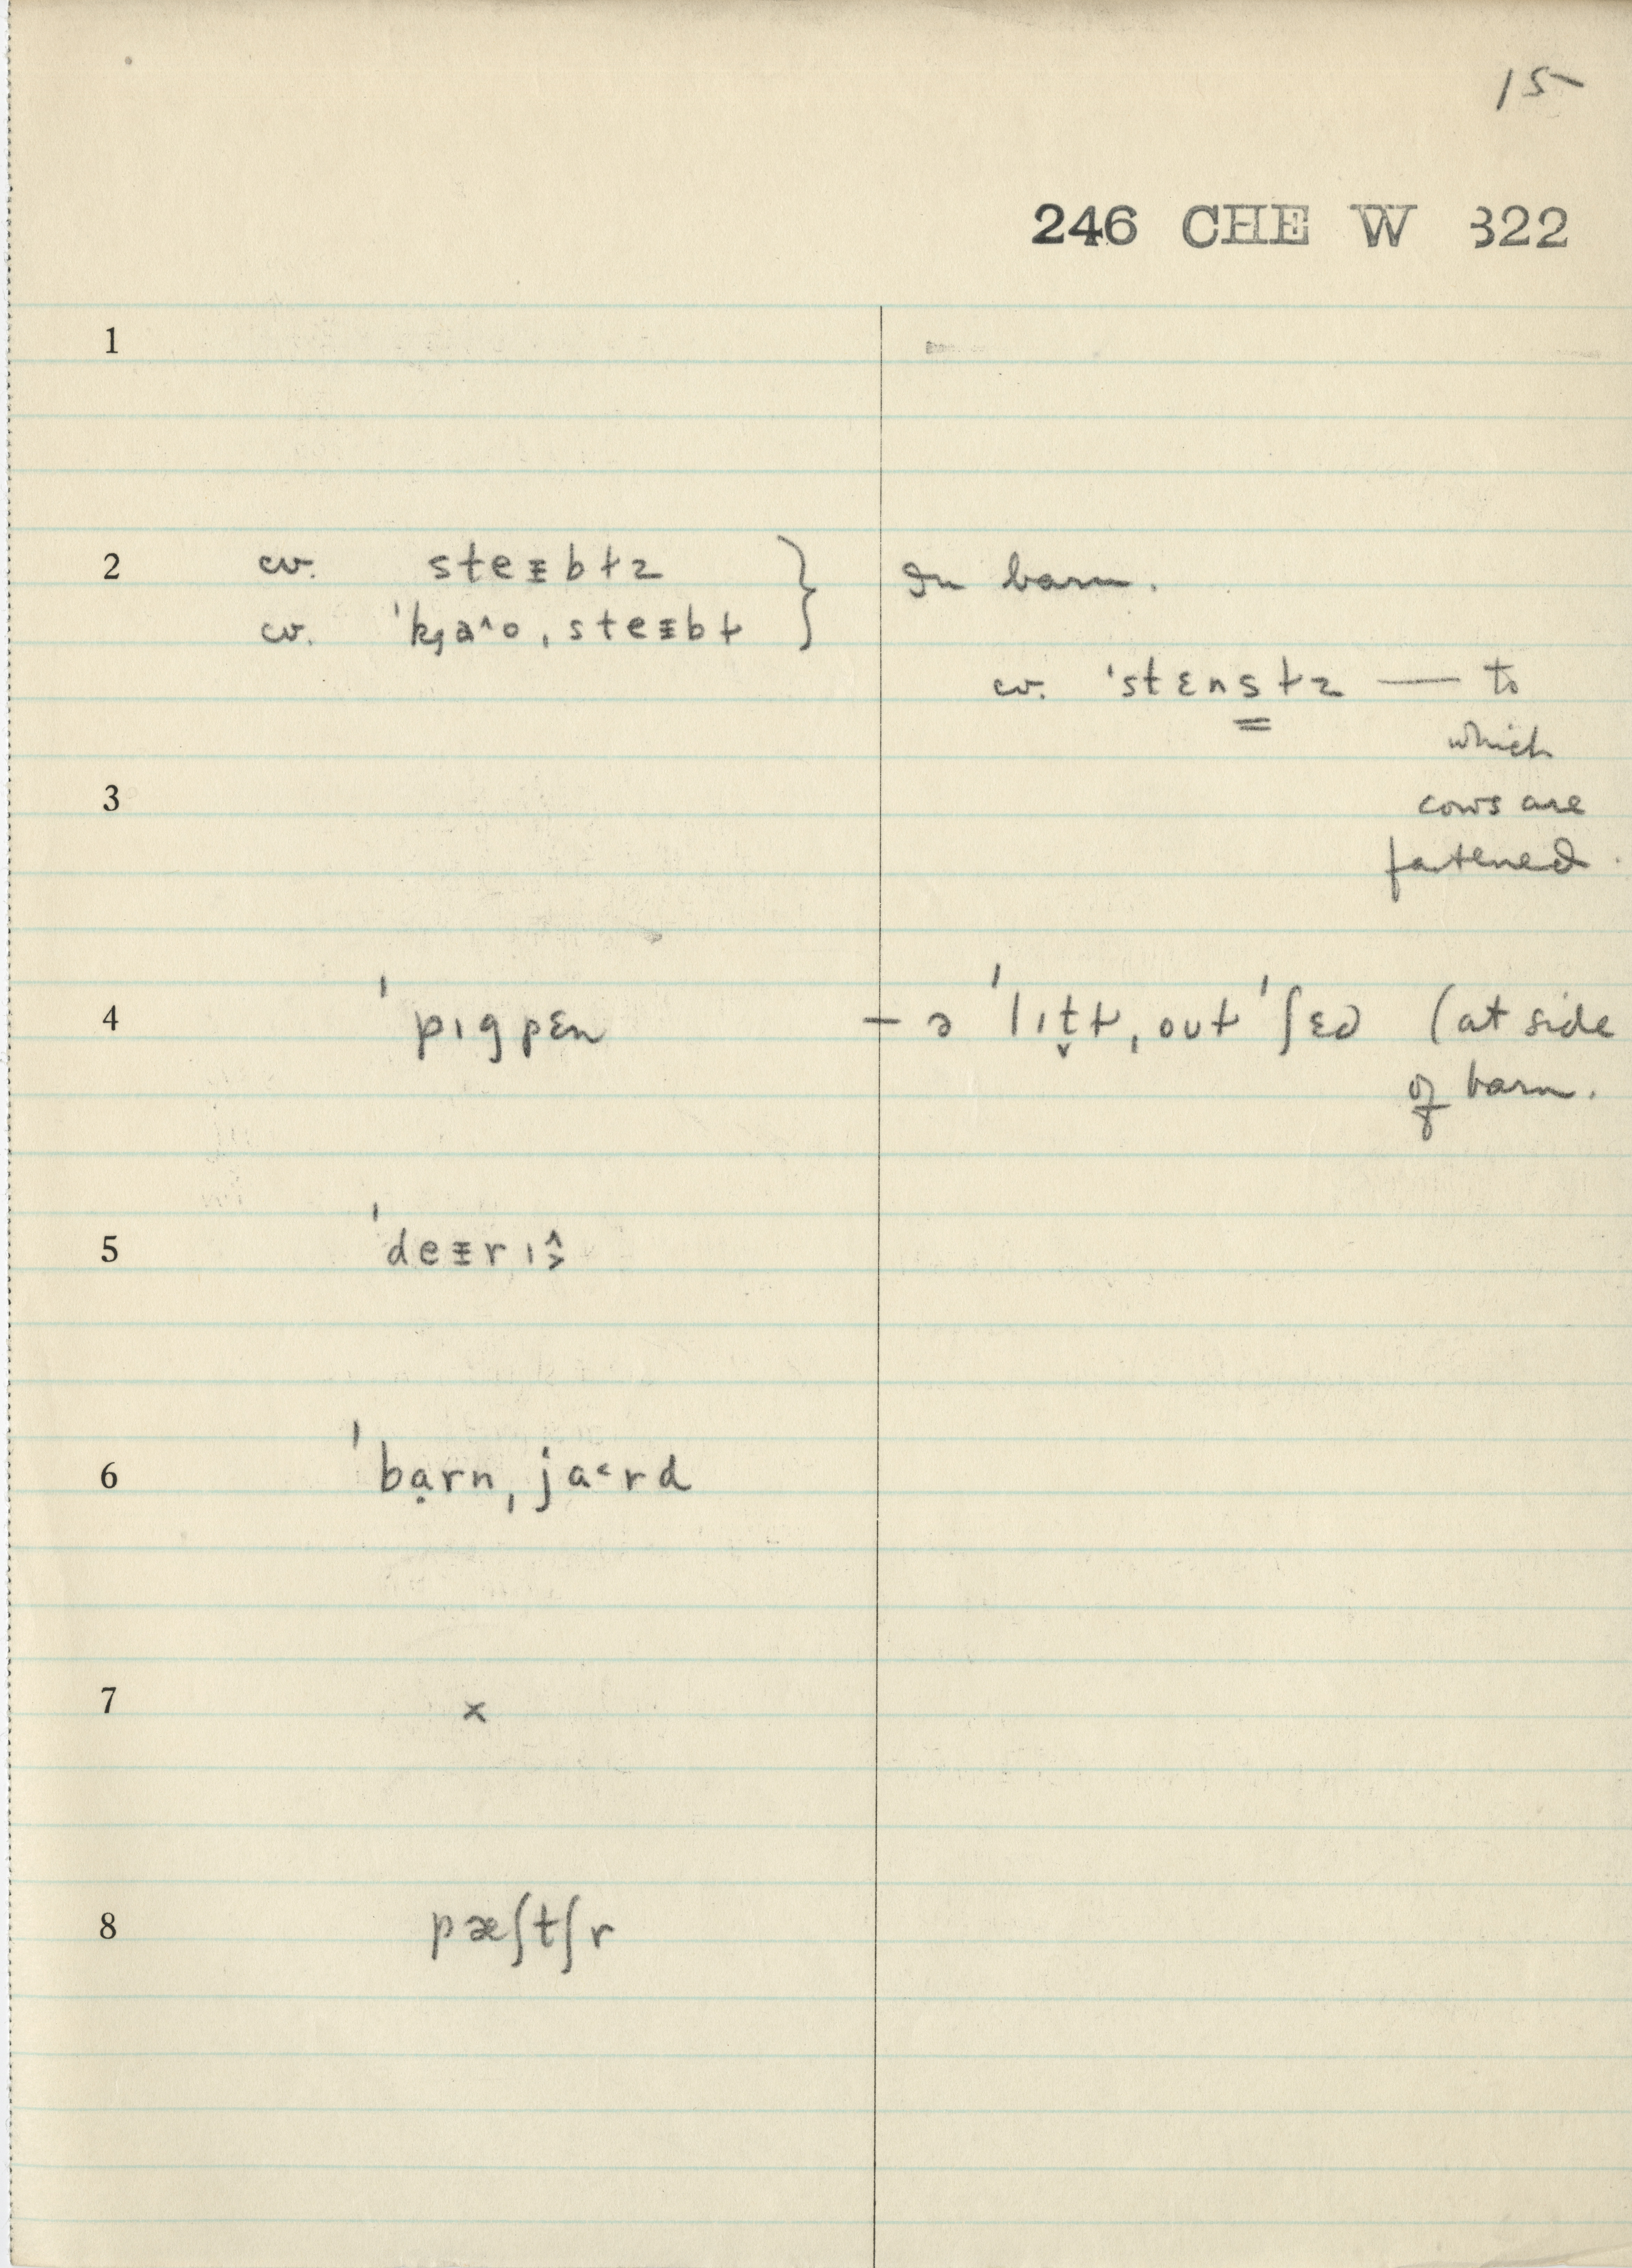 15
246 CHE W 322
1
2 cv. steɪbɫz } In barn.
cv. ˈkȷa^o ˌsteɪbɫ
cv. ˈstɛnsɫz — to
which
cows are
fastened.
3
4 ˈpıgpɛn – ə ˈlıt̬ɫ ˌoutˈʃɛd (at side
of barn.
5 ˈdeɪrı
6 ˈbạrn ˌja˂rd
7 x
8 pæʃtʃr